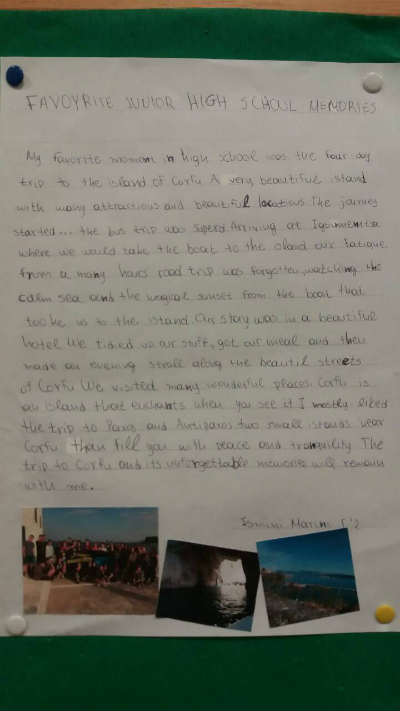 FAVOYRITE JUNIOR HIGH SCHOOL MEMORIES
My favorite momam in high school was the four day
trip to the island of Corfu. A very beautiful island
with many attractions and beautiful locations. The journey
started... the bus trip was superd. Arriving at Igoumenitsa
where we would take the boat to the oland our fatigue
from a many hours road trip was forgotten, watching the
calm sea and the magical sunset from the boat that
tooke us to the island. Our story was in a beautiful
hotel. We tidied up our stuff, got our meal and then
made an evening stroll along the beautil streets
of Corfu. We visited many wonderful places. Corfu is
an island that enchants when you see it. I mostly liked
the trip to Paxos and Antipaxos two small islands near
Corfu than fill you with peace and tranquility. The
trip to Corfu and its unforgettable memories will remain
with me.
Marini Γ'2